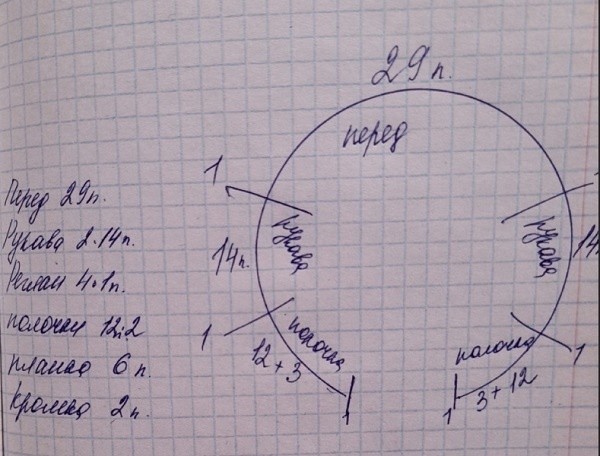 29 п.
перед
1
Перед 29п.
Рукава 2·14п.
Реглан 4·1п.
полочки 12·2
планка 6 п.
кромка 2п.
рукава
14п.
1
полочка
12 + 3
1
рукава
14
1
полочка
3 + 12
1